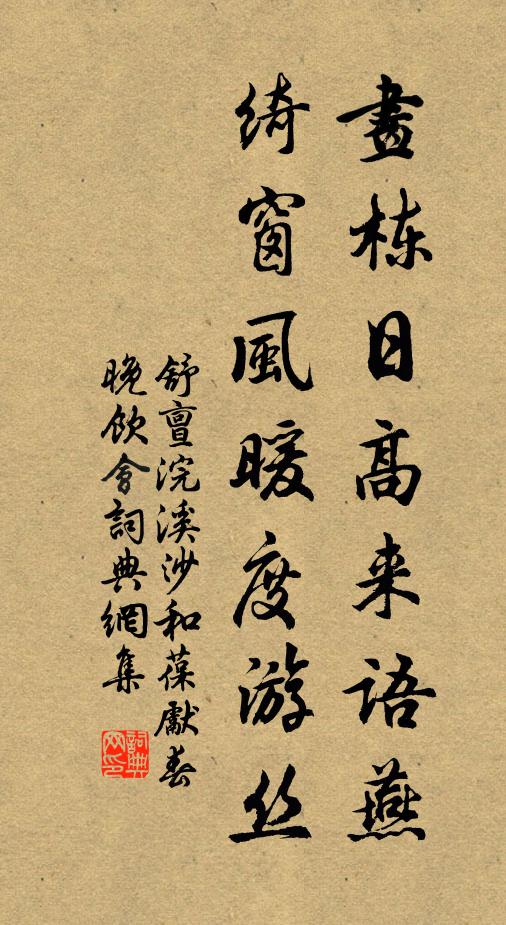 畫栋日高来语燕
绮窗風暖度游丝
舒亶浣溪沙和葆獻春
晚飲會詞典網集
詞典網印